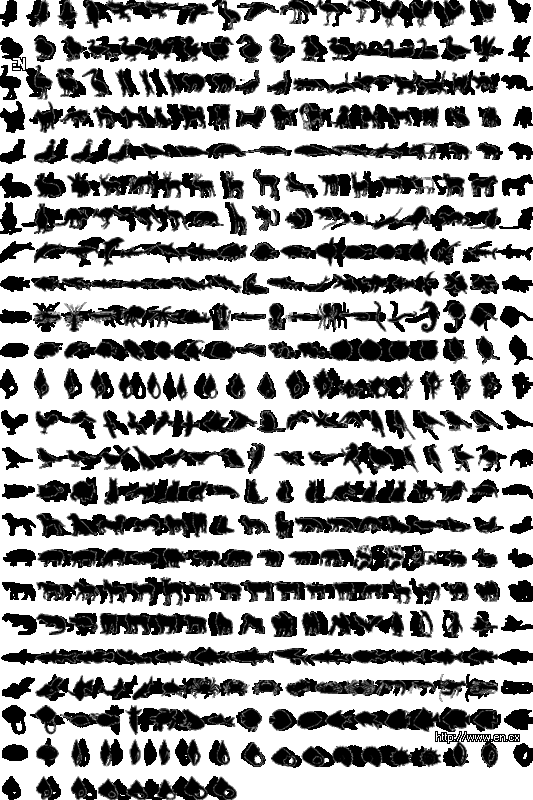 EN
http://www.en.cx